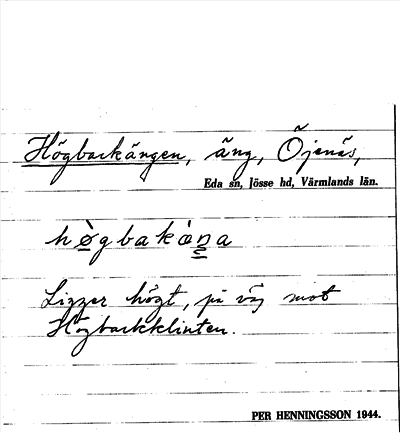 Högbackängen, äng, Öjenäs,
Eda sn, Jösse hd, Värmlands län.
hø̀gbakàŋa
Ligger högt, på väg mot
Högbackklinten.
PER HENNINGSSON 1944.